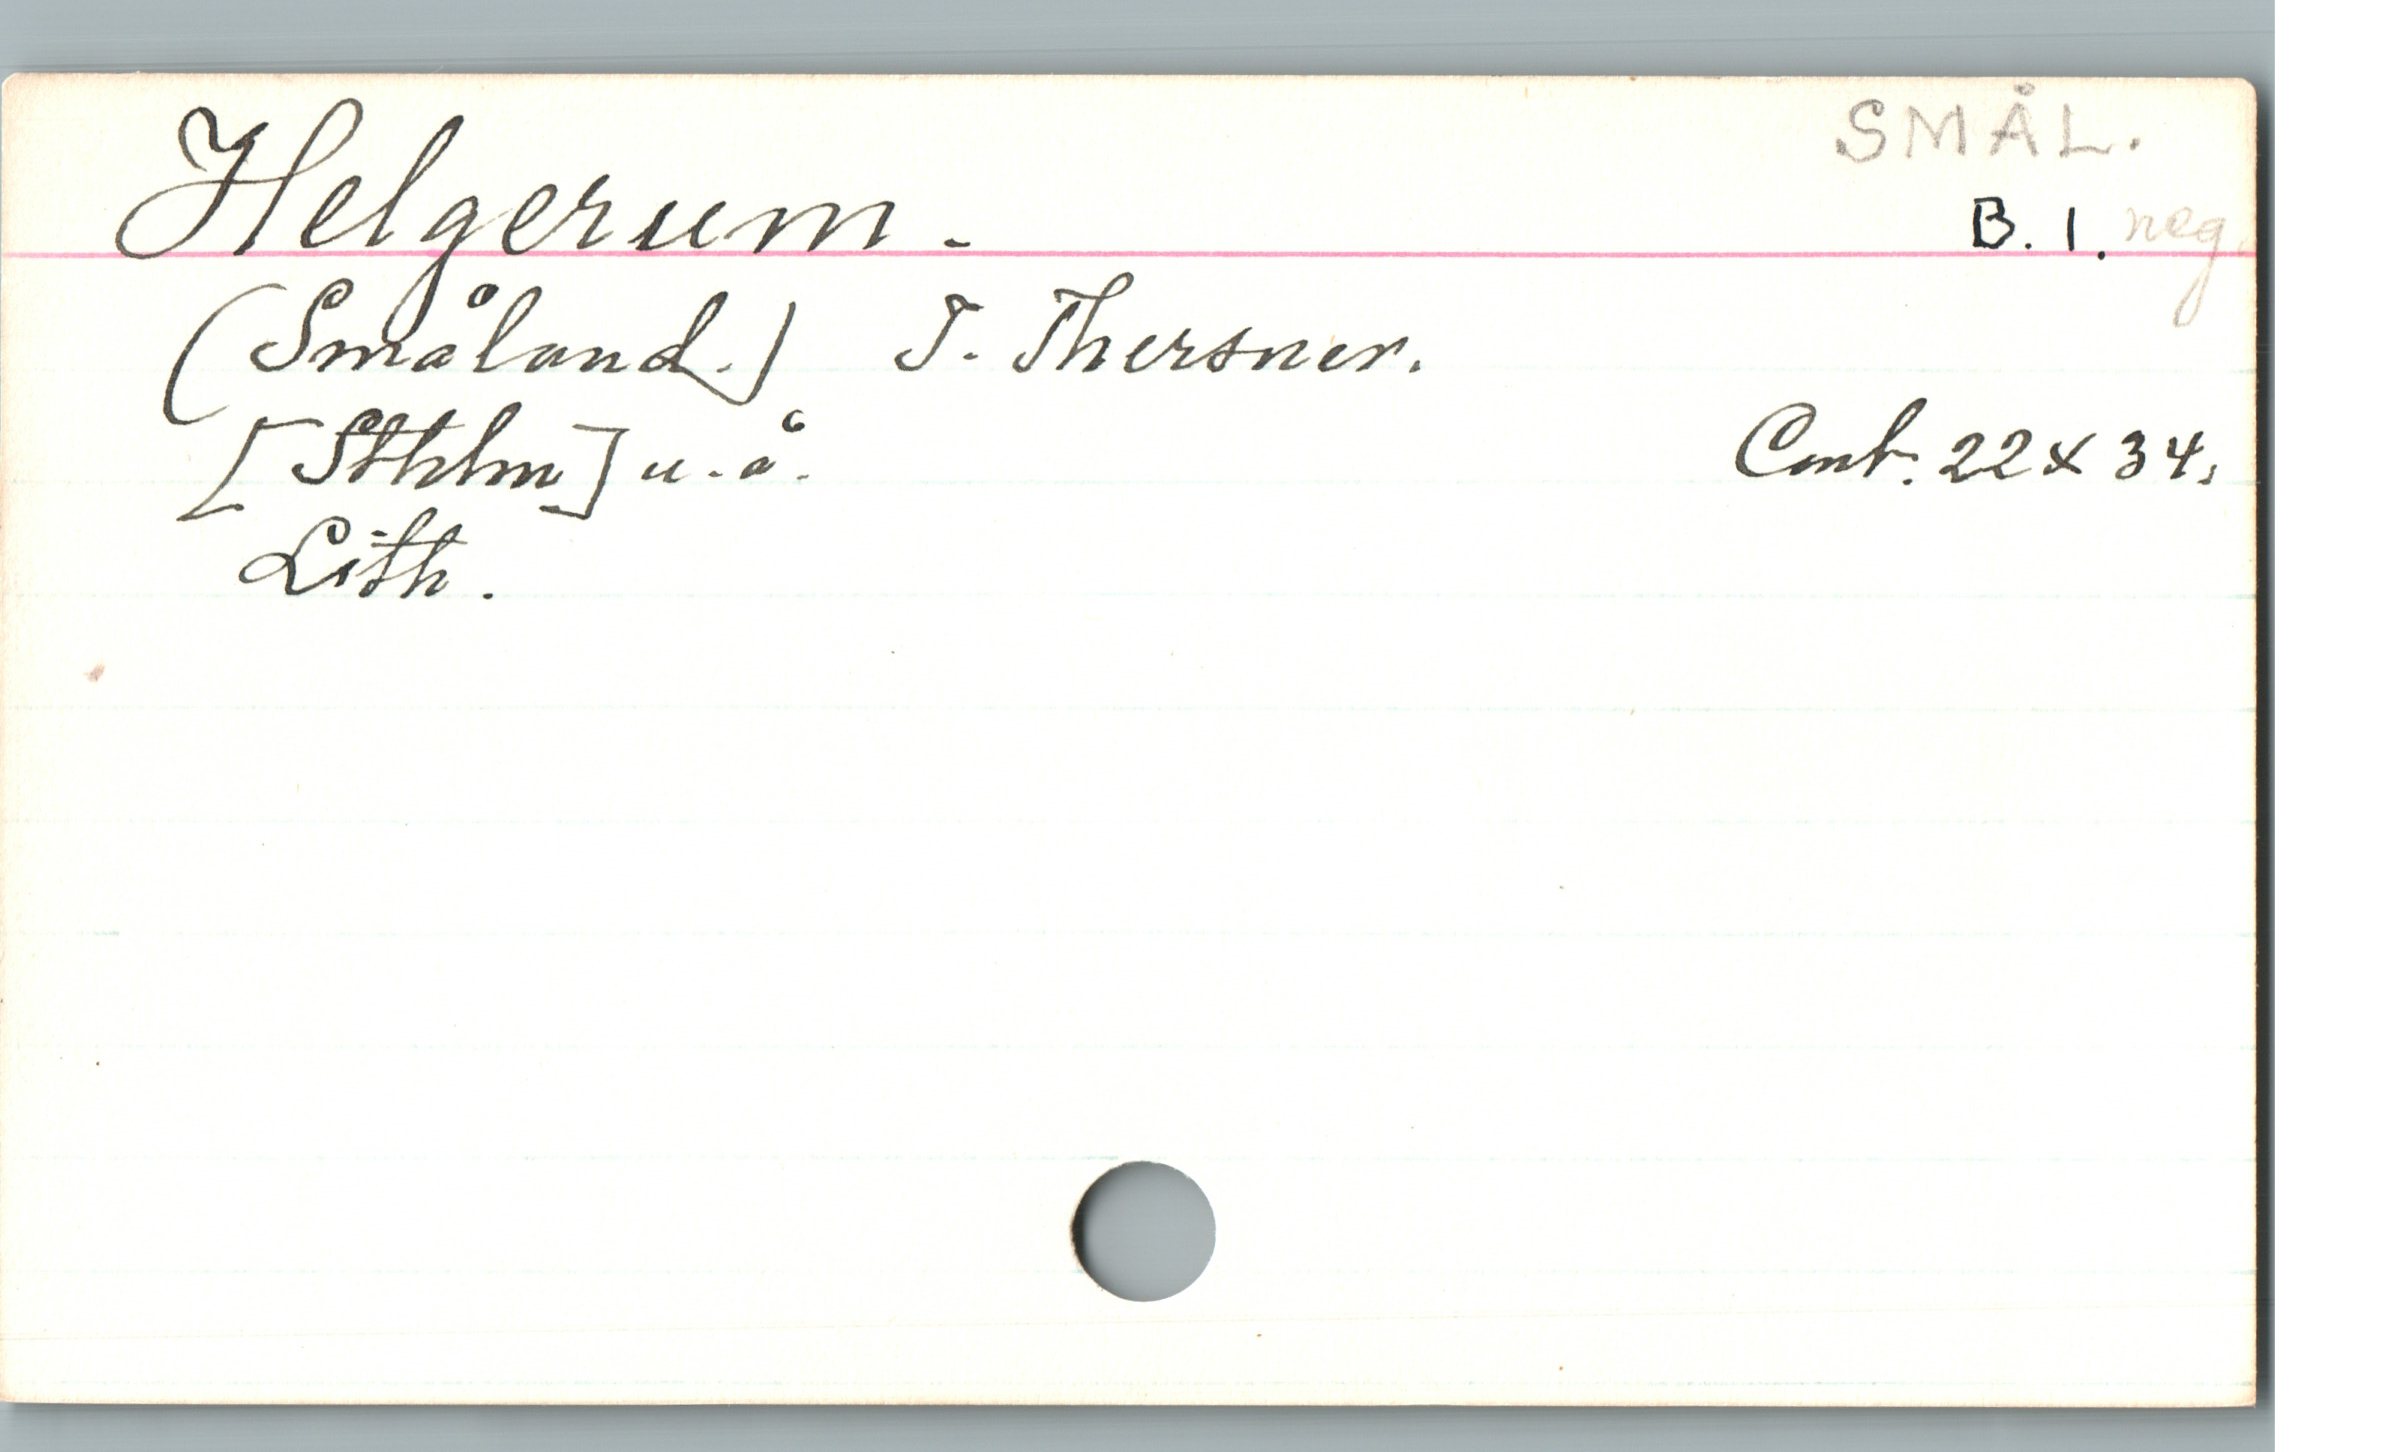 SMÅL.
Helgerum. B. 1. neg.
(Småland.) T. Thersner.
[Sthlm] u. å. Cmt. 22 x 34.
Lith.